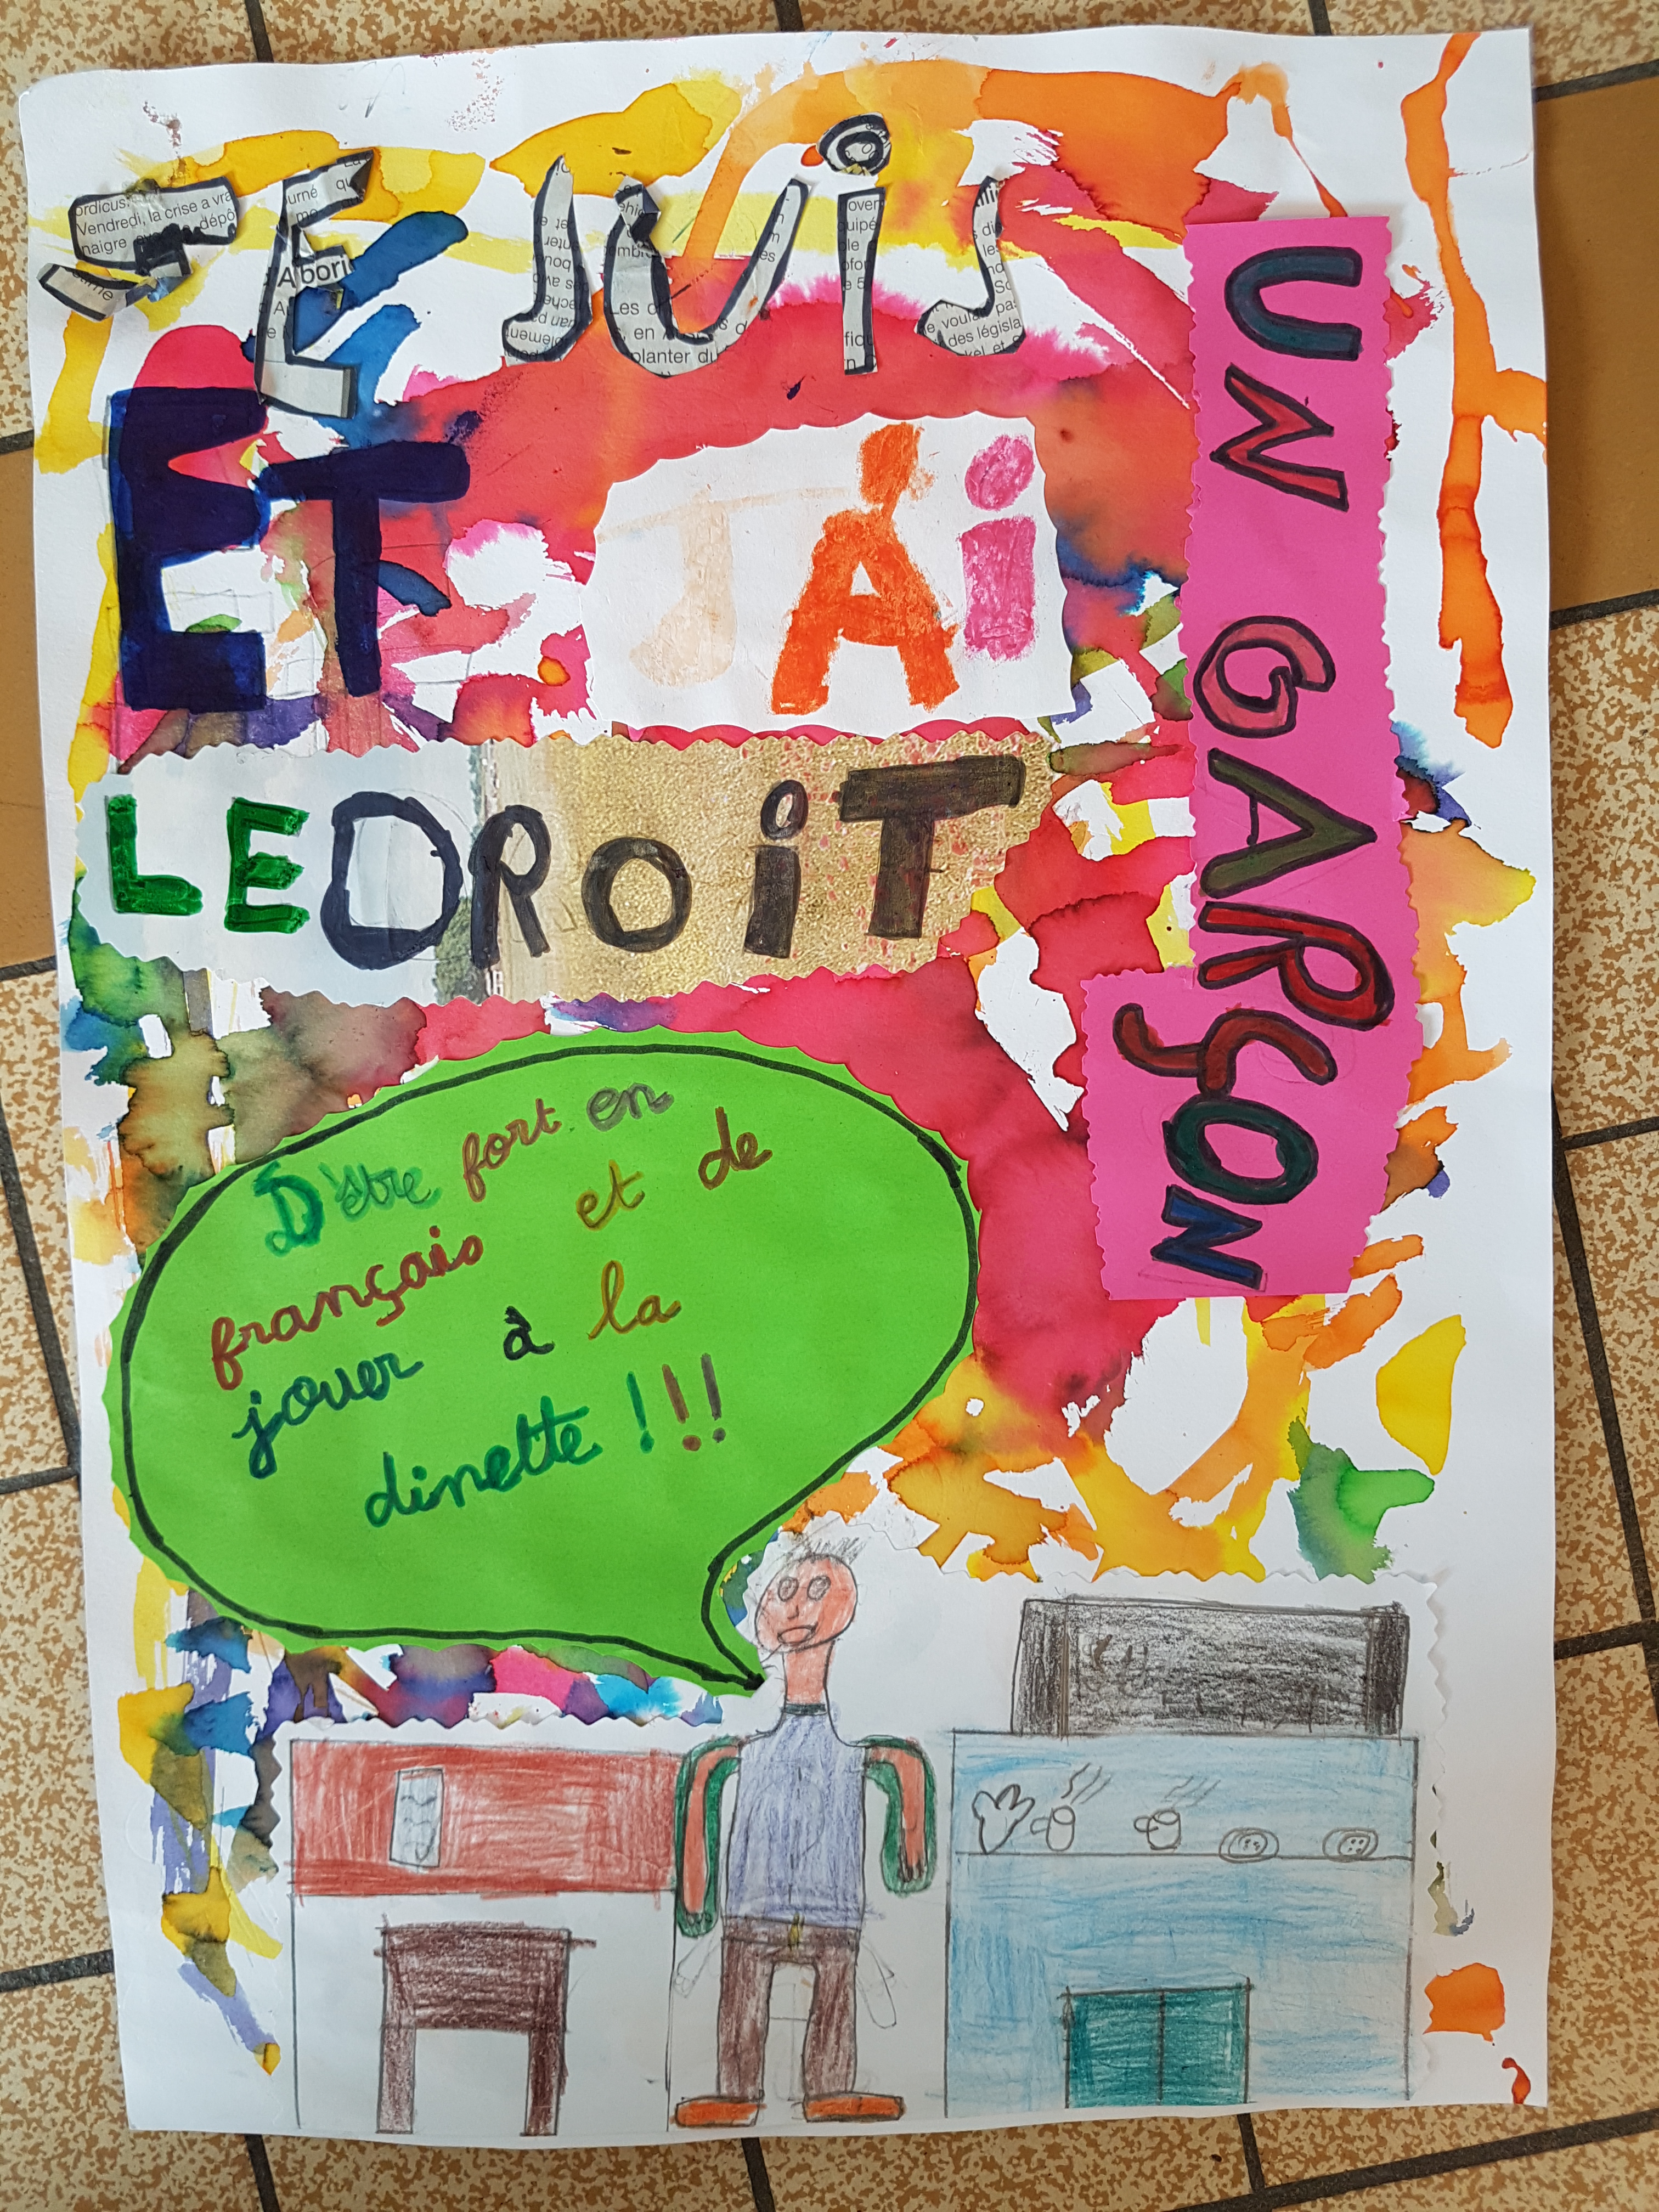 JE SUiS
UN GARÇON
ET J'Ai
LE DROiT
D'être fort en
français et de
jouer à la
dinette !!!